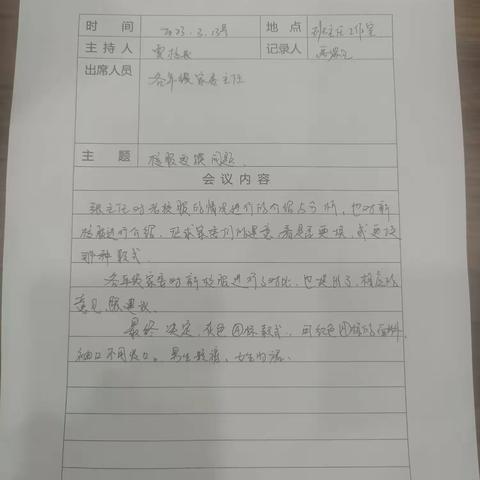 时 间 2023.3.13号 地 点 班主任工作室
主 持 人 贾校长 记录人
出席人员 各年级家委主任
主 题 校服更换问题.
会 议 内 容
张主任对老校服的情况进行的介绍与分析，也对新
校服进行介绍，征求家委们的意见，看是否更换，或更换
哪种款式.
各年级家委对新校服进行了对比，也提出了相应的
意见跟建议.
最终决定，灰色园标款式，用红色园标的面料，
袖口不用收口。男生短裤，女生